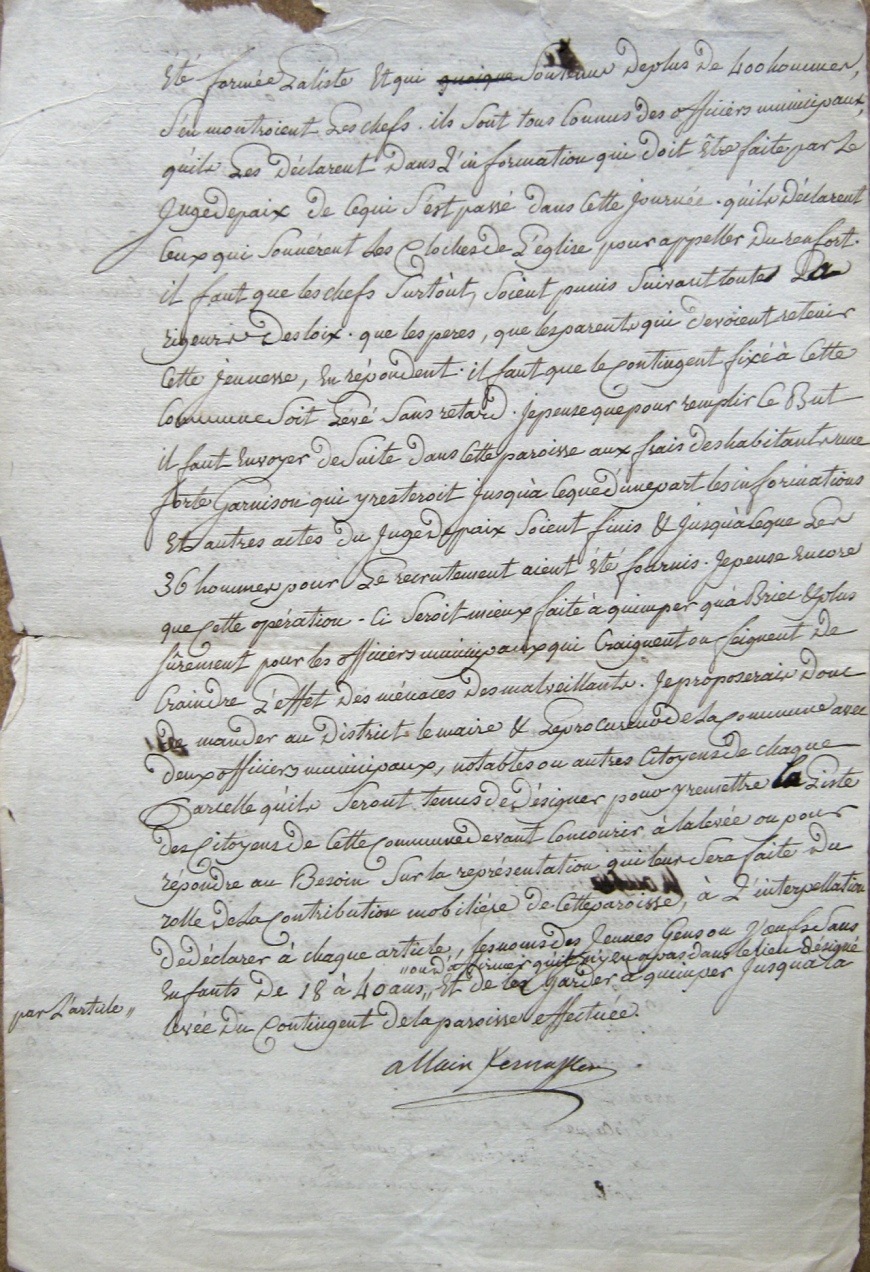 Eté formée La liste Et qui quoique Soutenus de plus de 400 hommes,
S'en montroient Les chefs. ils Sont tous Connus des officiers municipaux,
qu'ils Les Déclarent Dans L'information qui doit Etre faite par Le
Juge de paix de Ce qui S'est passé dans Cette Journée. qu'ils Déclarent
Ceux qui Sonnérent Les Cloches de L'Eglise pour appeller Du renfort.
il faut que les chefs Surtout, Soient punis Suivant toute La
rigeur Des loix. que les peres, que les parents qui devoient retenir
Cette Jeunesse, En répondent. il faut que le Contingent fixé à Cette
Commune Soit Levé Sans retard. Je pense que pour remplir Ce But
il faut Envoyer de Suite Dans Cette paroisse aux frais des habitants une
forte Garnison qui y resteroit Jusqu'à Ce que d'une part les informations
Et autres actes du Juge de paix Soient finis & Jusqu'à Ce que Les
36 hommes pour Le recrutement aient Eté fournis. Je pense Encore
que Cette opération-Ci Seroit mieux faite à quimper qu'à Briec & plus
Sûrement pour les officiers municipaux qui Craignent ou feignent De
Craindre L'effet Des ménaces Des malveillants. Je proposerais Donc
De mander au District le maire & Le procureur de La Commune avec
deux officiers municipaux, notables ou autres Citoyens de chaque
Parcelle qu'ils Seront tenus de Désigner pour y remettre la Liste
des Citoyens de Cette Commune devant Concourir à la levée ou pour
répondre au Besoin Sur la représentation qui leur Sera faite Du
rolle de La Contribution mobiliére de Cette paroisse, à L'interpellation
De déclarer à chaque article, les noms des Jeunes Gens ou Veufs Sans
"ou D'affirmer qu'il n'y en a pas dans le lieu Désigné
Enfants De 18 à 40 ans,, Et de les Garder à quimper Jusqu'à la
par L'article"
levée Du Contingent de la paroisse effectuée.
allain Kernafflen